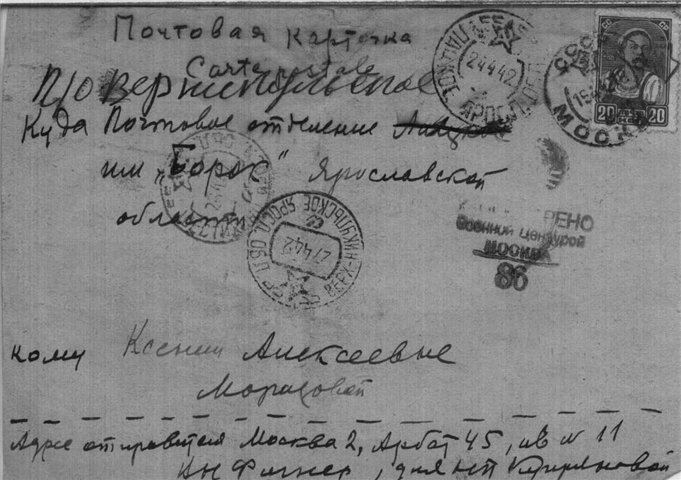 Почтовая карточка
Carte postale
п/о Верхнекульское
Куда Почтовое отделение
им „Борок" Ярославской
области
24 4 42
СССР
МОСКВА
20 20
27 4 42
ВЕРХ-НИКУЛЬСКОЕ ЯРОСЛ. ОБЛ.
Военной Цензурой
МОСКВА
86
кому Ксении Алексеевне
Морозовой
Адрес отправителя Москва 2, Арбат 45, кв N 11
Фигнер, для